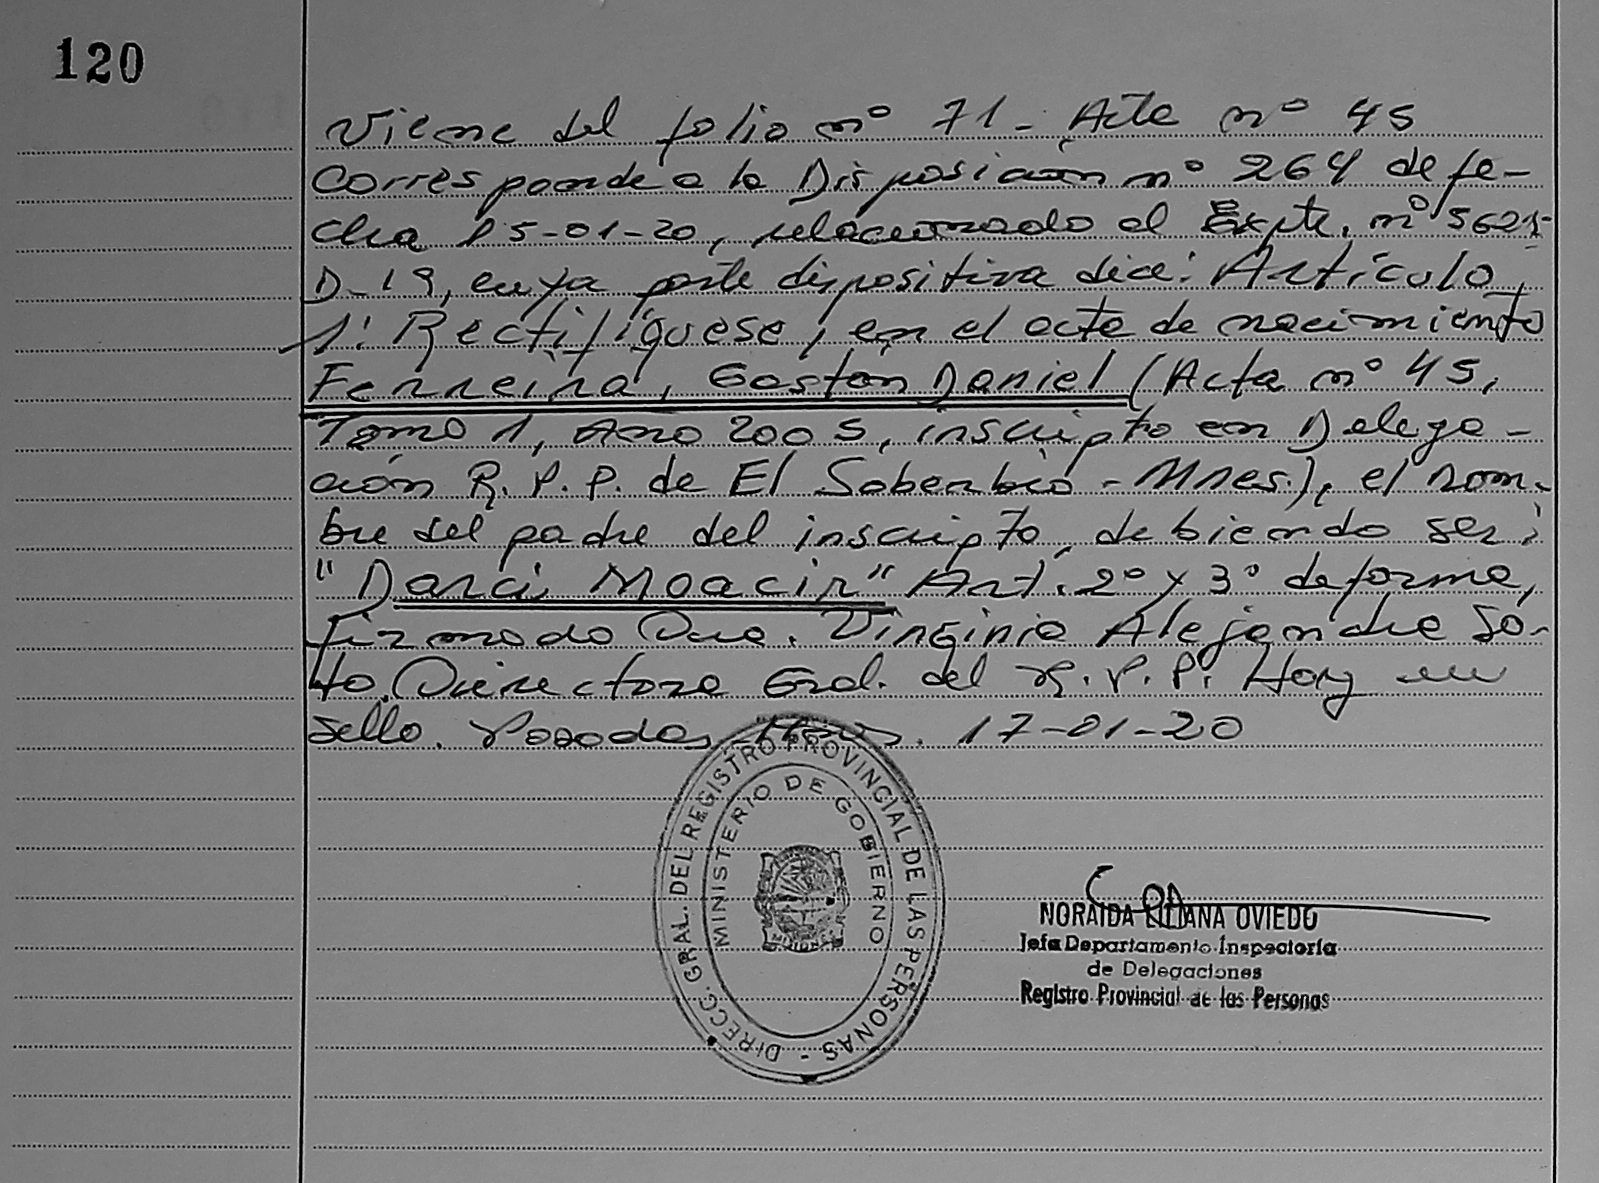 120
Viene del folio nº 71 - Acta nº 45
Corresponde a la Disposición nº 264 de fe-
cha 15-01-20, relacionado al Expte. nº 5621-
D-19, cuya parte dispositiva dice: Artículo
1: Rectifíquese, en el acta de nacimiento
Ferreira, Gastón Daniel (Acta nº 45,
Tomo 1, Año 2005, inscripto en Delega-
ción R.P.P. de El Soberbio - Mnes.), el nom-
bre del padre del inscripto, debiendo ser:
"Darci Moacir" Art. 2º y 3º de forma,
firmado Dra. Virginia Alejandra So-
to. Directora Gral. del R.P.P. Hay un
sello. Posadas, Mnes. 17-01-20
DIRECC. GRAL. DEL REGISTRO PROVINCIAL DE LAS PERSONAS -
MINISTERIO DE GOBIERNO
NORAIDA LILIANA OVIEDO
Jefa Departamento Inspectoría
de Delegaciones
Registro Provincial de las Personas